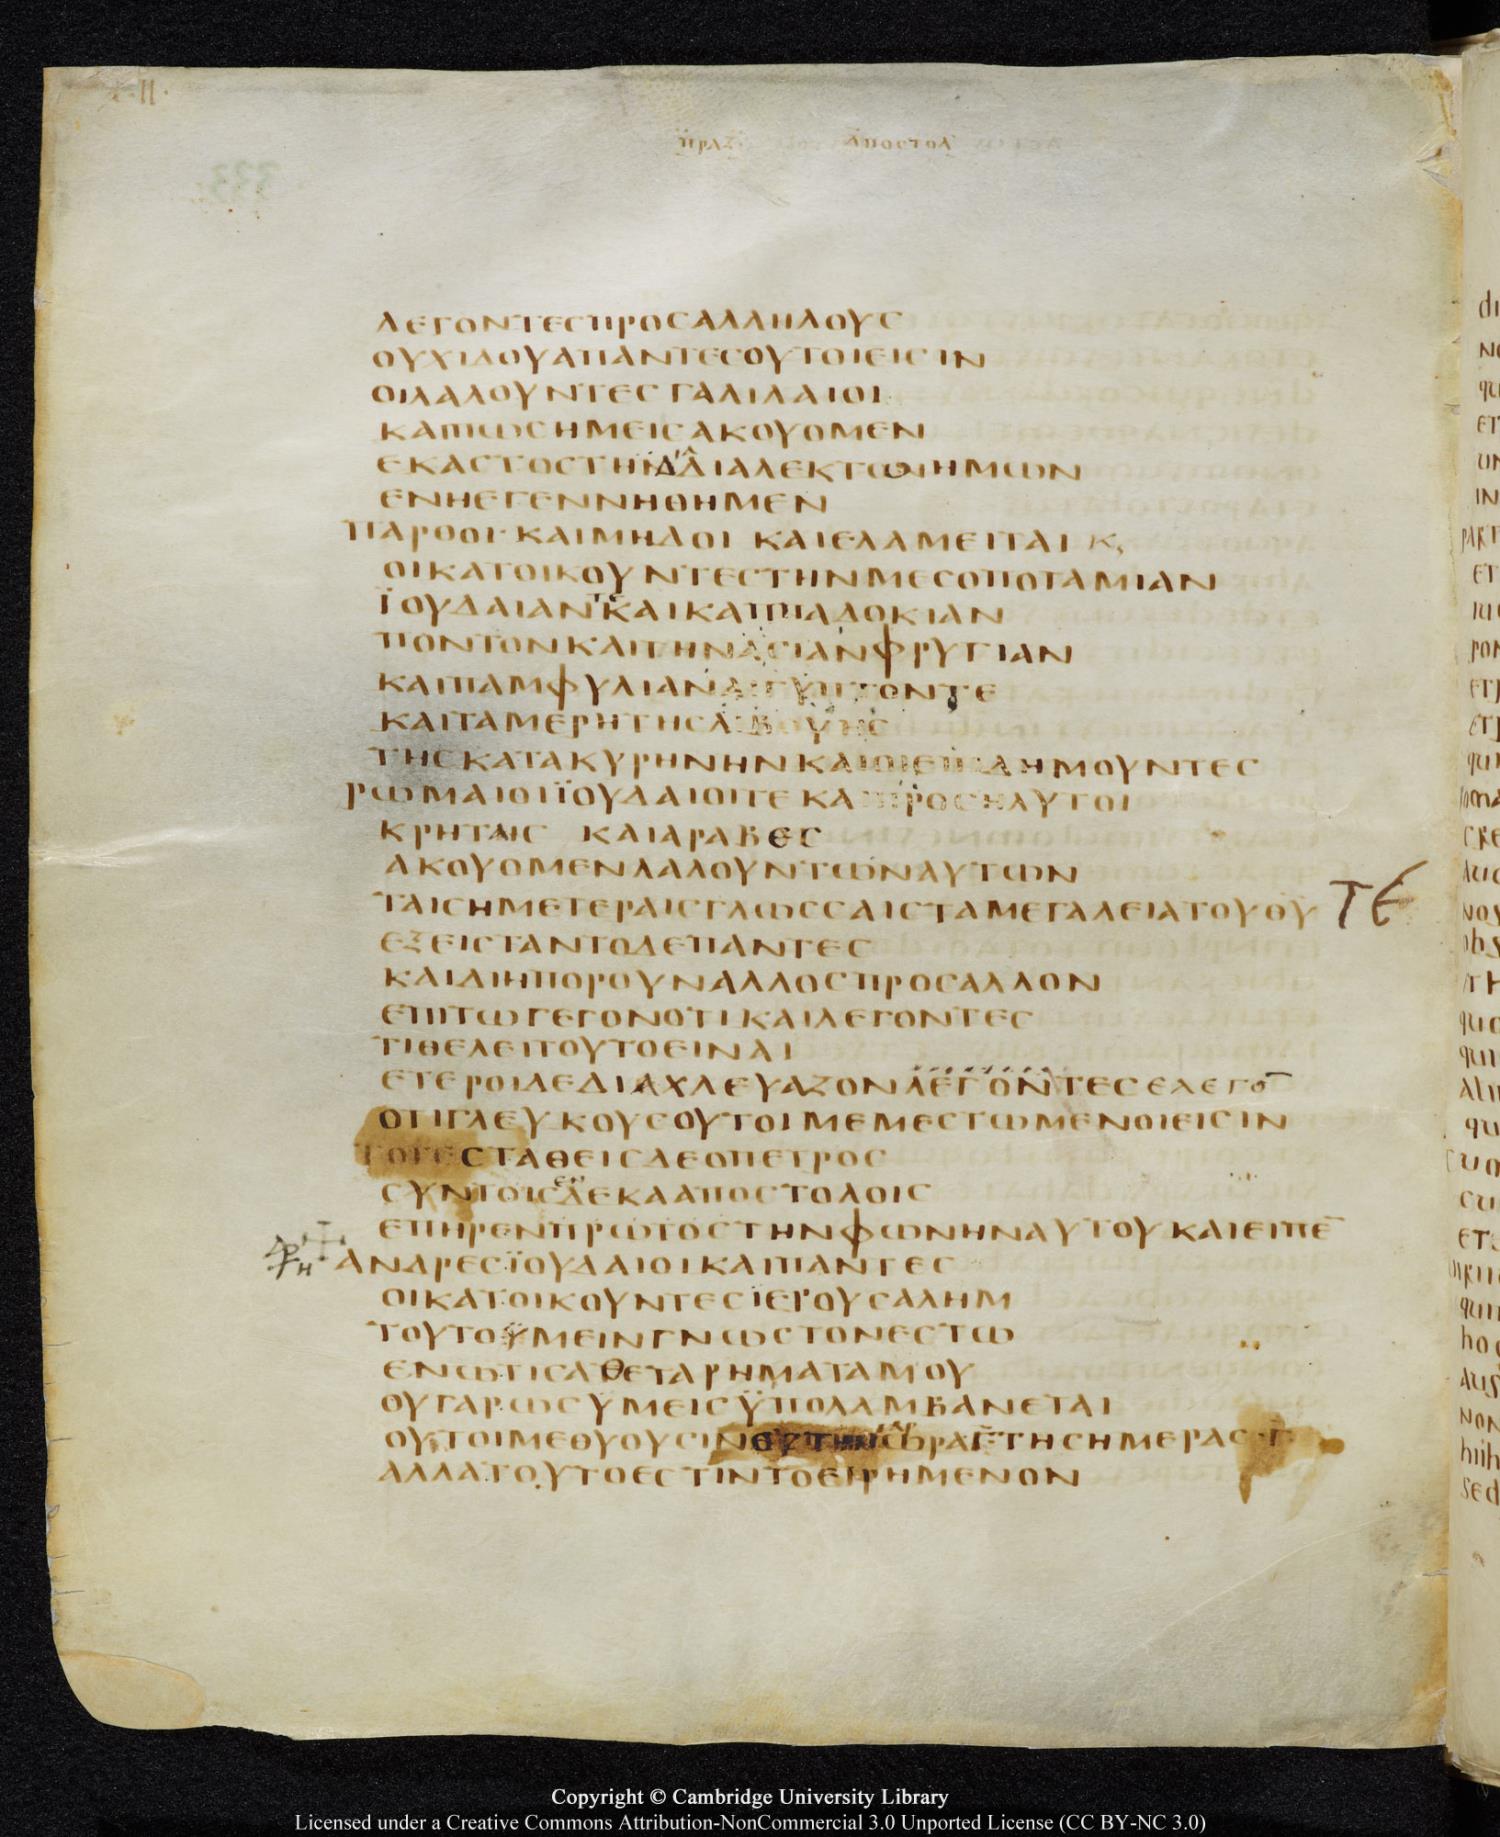 ΠΡΑΞ ΑΠΟΣΤΟΛ
ΛΕΓΟΝΤΕСΠΡΟСΑΛΛΗΛΟΥС
ΟΥΧΙΔΟΥΑΠΑΝΤΕСΟΥΤΟΙΕΙСΙΝ
ΟΙΛΑΛΟΥΝΤΕСΓΑΛΙΛΑΙΟΙ
ΚΑΙΠΩСΗΜΕΙСΑΚΟΥΟΜΕΝ
ΕΚΑСΤΟСΤΗΙΔΙΑΛΕΚΤΩΝΗΜΩΝ
ΕΝΗΕΓΕΝΝΗΘΗΜΕΝ
ΠΑΡΘΟΙ·ΚΑΙΜΗΔΟΙ ΚΑΙΕΛΑΜΕΙΤΑΙ Κ,
ΟΙΚΑΤΟΙΚΟΥΝΤΕСΤΗΝΜΕСΟΠΟΤΑΜΙΑΝ
ΪΟΥΔΑΙΑΝΚΑΙΚΑΠΠΑΔΟΚΙΑΝ
ΠΟΝΤΟΝΚΑΙΤΗΝΑСΙΑΝΦΡΥΓΙΑΝ
ΚΑΙΠΑΜΦΥΛΙΑΝΑΙΓΥΠΤΟΝΤΕ
ΚΑΙΤΑΜΕΡΗΤΗСΛΙΒΟΥΗС
ΤΗСΚΑΤΑΚΥΡΗΝΗΝΚΑΙΟΙΕΠΙΔΗΜΟΥΝΤΕС
ΡΩΜΑΙΟΙΪΟΥΔΑΙΟΙΤΕΚΑΙΠΡΟСΗΛΥΤΟΙ
ΚΡΗΤΑΙС ΚΑΙΑΡΑΒΕС
ΑΚΟΥΟΜΕΝΛΑΛΟΥΝΤΩΝΑΥΤΩΝ
ΤΑΙСΗΜΕΤΕΡΑΙСΓΛΩССΑΙСΤΑΜΕΓΑΛΕΙΑΤΟΥΘΥ ΤΕ
ΕΞΕΙСΤΑΝΤΟΔΕΠΑΝΤΕС
ΚΑΙΔΙΗΠΟΡΟΥΝΑΛΛΟСΠΡΟСΑΛΛΟΝ
ΕΠΙΤΩΓΕΓΟΝΟΤΙΚΑΙΛΕΓΟΝΤΕС
ΤΙΘΕΛΕΙΤΟΥΤΟΕΙΝΑΙ
ΕΤΕΡΟΙΔΕΔΙΑΧΛΕΥΑΖΟΝΛΕΓΟΝΤΕСΕΛΕΓΟ̅
ΟΤΙΓΛΕΥΚΟΥСΟΥΤΟΙΜΕΜΕСΤΩΜΕΝΟΙΕΙСΙΝ
ΤΟΤΕСΤΑΘΕΙСΔΕΟΠΕΤΡΟС
СΥΝΤΟΙСΔΕΚΑΑΠΟСΤΟΛΟΙС
ΕΠΗΡΕΝΠΡΩΤΟСΤΗΝΦΩΝΗΝΑΥΤΟΥΚΑΙΕΙΠΕ̅
ΑΝΔΡΕСΪΟΥΔΑΙΟΙΚΑΙΠΑΝΤΕС
ΟΙΚΑΤΟΙΚΟΥΝΤΕСΪΕΡΟΥСΑΛΗΜ
ΤΟΥΤΟΫΜΕΙΝΓΝΩСΤΟΝΕСΤΩ
ΕΝΩΤΙСΑΘΕΤΑΡΗΜΑΤΑΜΟΥ
ΟΥΓΑΡΩСΥΜΕΙСΫΠΟΛΑΜΒΑΝΕΤΑΙ
ΟΥΤΟΙΜΕΘΥΟΥСΙΝ ΩΡΑ ΤΗСΗΜΕΡΑС
ΑΛΛΑΤΟΥΤΟΕСΤΙΝΤΟΕΙΡΗΜΕΝΟΝ
Copyright © Cambridge University Library
Licensed under a Creative Commons Attribution-NonCommercial 3.0 Unported License (CC BY-NC 3.0)